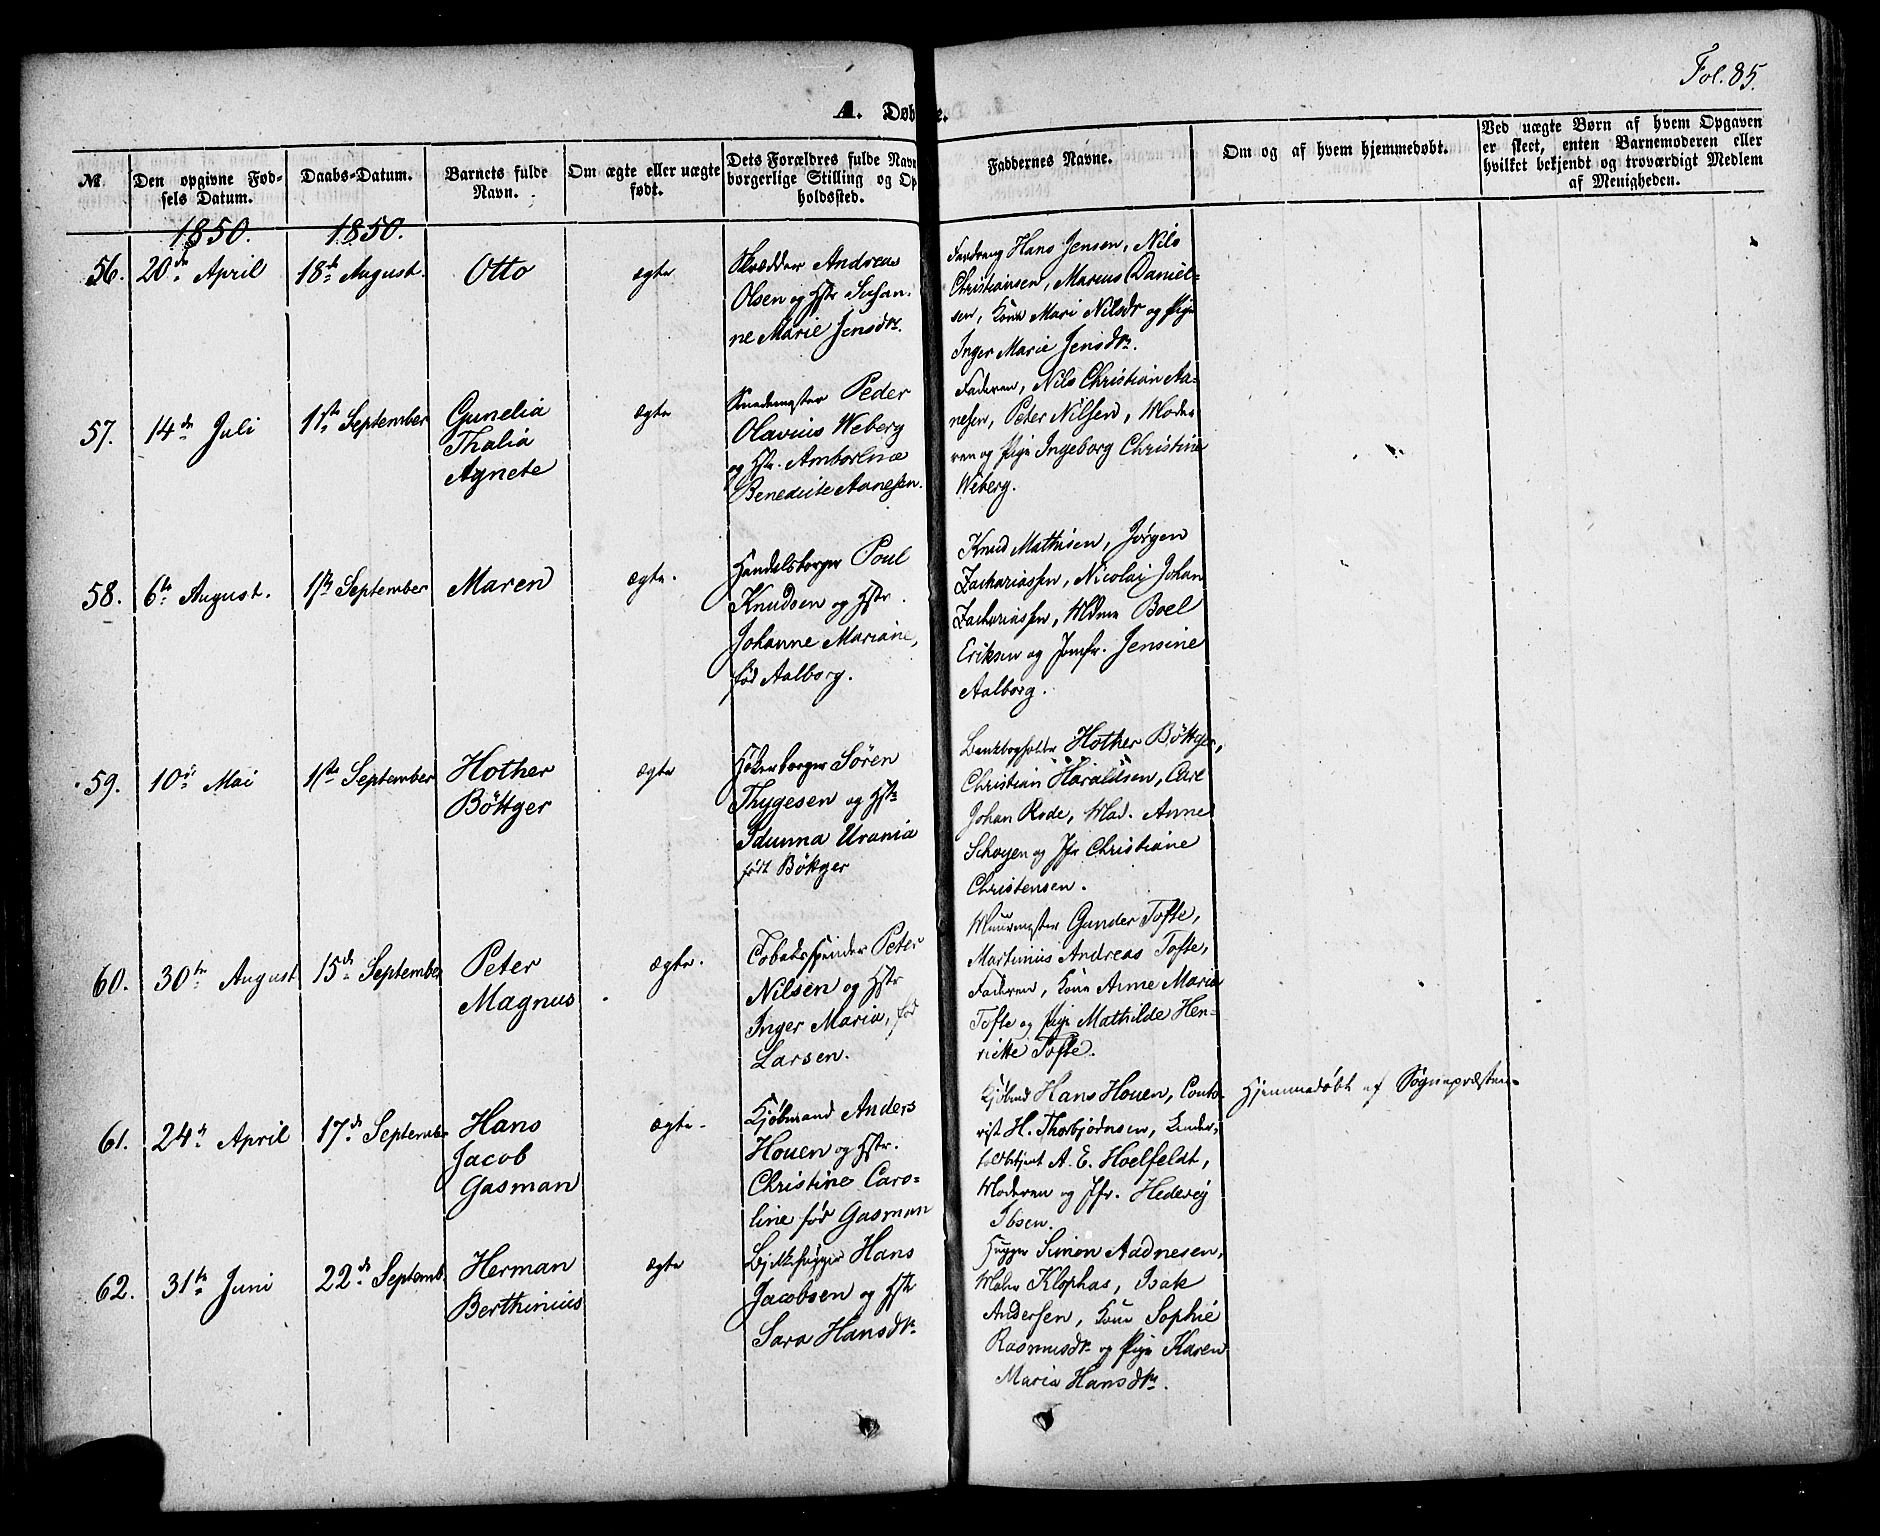 Fol. 85.
A. Døb e.
№
Den opgivne Fød-
sels Datum.
Daabs-Datum.
Barnets fulde
Navn.
Om ægte eller uægte
født.
Dets Forældres fulde Navn
borgerlige Stilling og Op
holdssted.
Faddernes Navne.
Om og af hvem hjemmedøbt.
Ved uægte Børn af hvem Opgaven
er skeet, enten Barnemoderen eller
hvilket bekjendt og troværdigt Medlem
af Menigheden.
1850.
1850.
56.
20de April
18de August.
Otto
ægte
Skrædder Andreas
Olsen og Hstr Susan-
ne Marie Jensdtr.
Hans Jensen, Nils
Christiansen, Marius Daniel-
sen, Kone Mari Nilsdr og Pige
Inger Marie Jensdtr.
57.
14de Juli
1ste September
Gunelia
Thalia
Agnete
ægte
Smedemester Peder
Olavius Weberg
og Hstr. Amborlnæ
Benedicte Aanesen.
Faderen, Nils Christian Aa-
nesen, Peter Nilsen, Mode-
ren og Pige Ingeborg Christine
Weberg.
58.
6te August.
1ste September
Maren
ægte.
Handelsborger Poul
Knudsen og Hstr.
Johanne Mariane,
fød Aalborg.
Knud Mathisen, Jørgen
Zachariassen, Nicolai Johan
Zachariassen, Mdme Boel
Eriksen og Jomfr. Jensine
Aalborg.
59.
10de Mai
1ste September
Hother
Böttger
ægte
Høkerborger Sören
Thygesen og Hstr
Idunna Urania
født Böttger
Bankbogholder Hother Böttger,
Christian Haraldsen, Carl
Johan Rode, Mad. Anne
Schøyen og Jfr Christiane
Christensen.
60.
30te August
15de September
Peter
Magnus
ægte.
Tobaksspinder Peter
Nilsen og Hstr
Inger Maria, fød
Larsen.
Muurmester Gunder Tofte,
Martinius Andreas Tofte,
Faderen, Kone Anne Marie
Tofte og Pige Mathilde Hen-
riette Tofte.
61.
24de April
17de September
Hans
Jacob
Gasman
ægte.
Kjøbmand Anders
Houen og Hstr.
Christine Caro-
line fød Gasman
Kjøbmd Hans Houen, Conto-
rist H. Thorbjørnsen, Under-
toldbetjent A. E. Hoelfeldt,
Moderen og Jfr. Hedevig
Ibsen.
Hjemmedøbt af Sognepræsten.
62.
31te Juni
22de Septemb.
Herman
Berthinius
ægte
Bjelkehugger Hans
Jacobsen og Hstr
Sara Hansdtr
Hugger Simon Aadnesen,
Maler Klophas, Isak
Andersen, Kone Sophie
Rasmusdtr og Pige Karen
Maria Hansdtr.